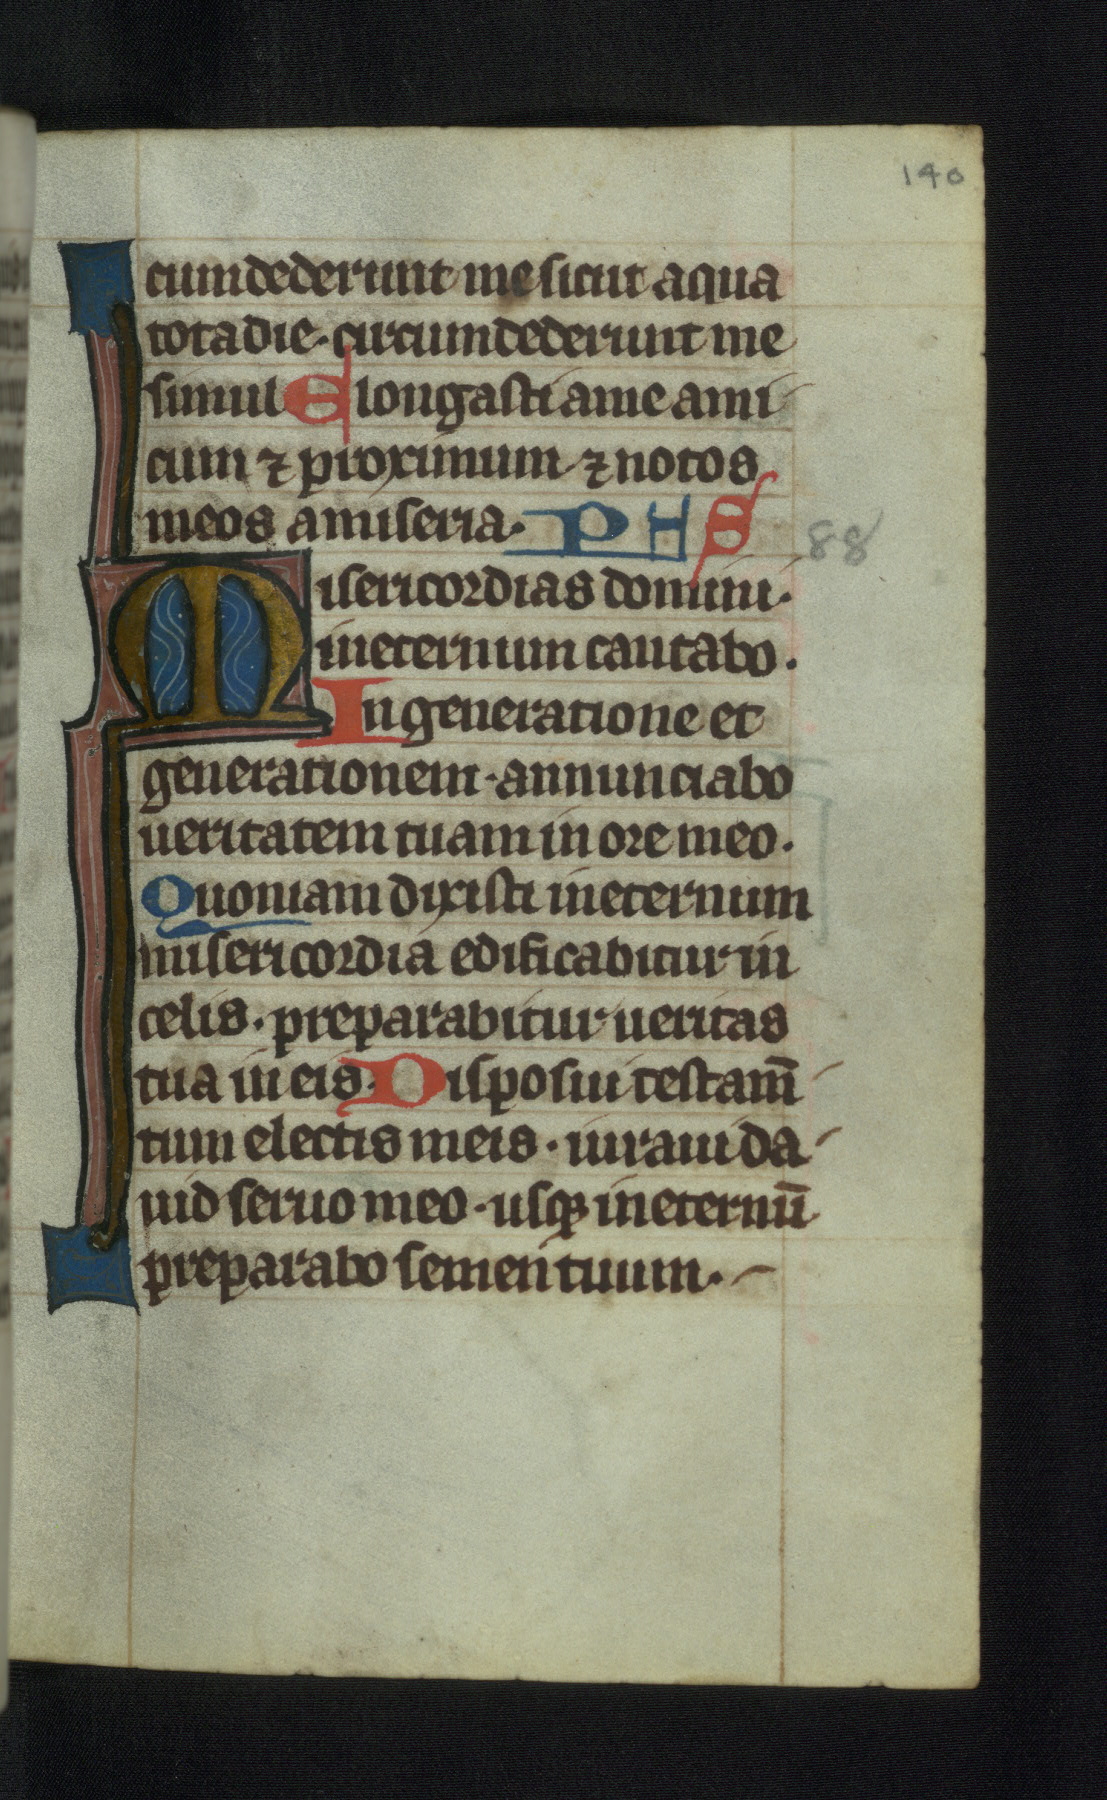 140
cumdederunt me sicut aqua
tota die · circumdederunt me
simul Elongasti a me ami
cum ⁊ proximum ⁊ notos
meos a miseria · PHS
88
Misericordias domini ·
in eternum cantabo ·
In generatione et
generationem · annunciabo
ueritatem tuam in ore meo ·
Quoniam dixisti in eternum
misericordia edificabitur in
celis · preparabitur ueritas
tua in eis · Disposui testam̄
tum electis meis · iuraui da
uid seruo meo · usqꝫ in eternū
preparabo semen tuum ·